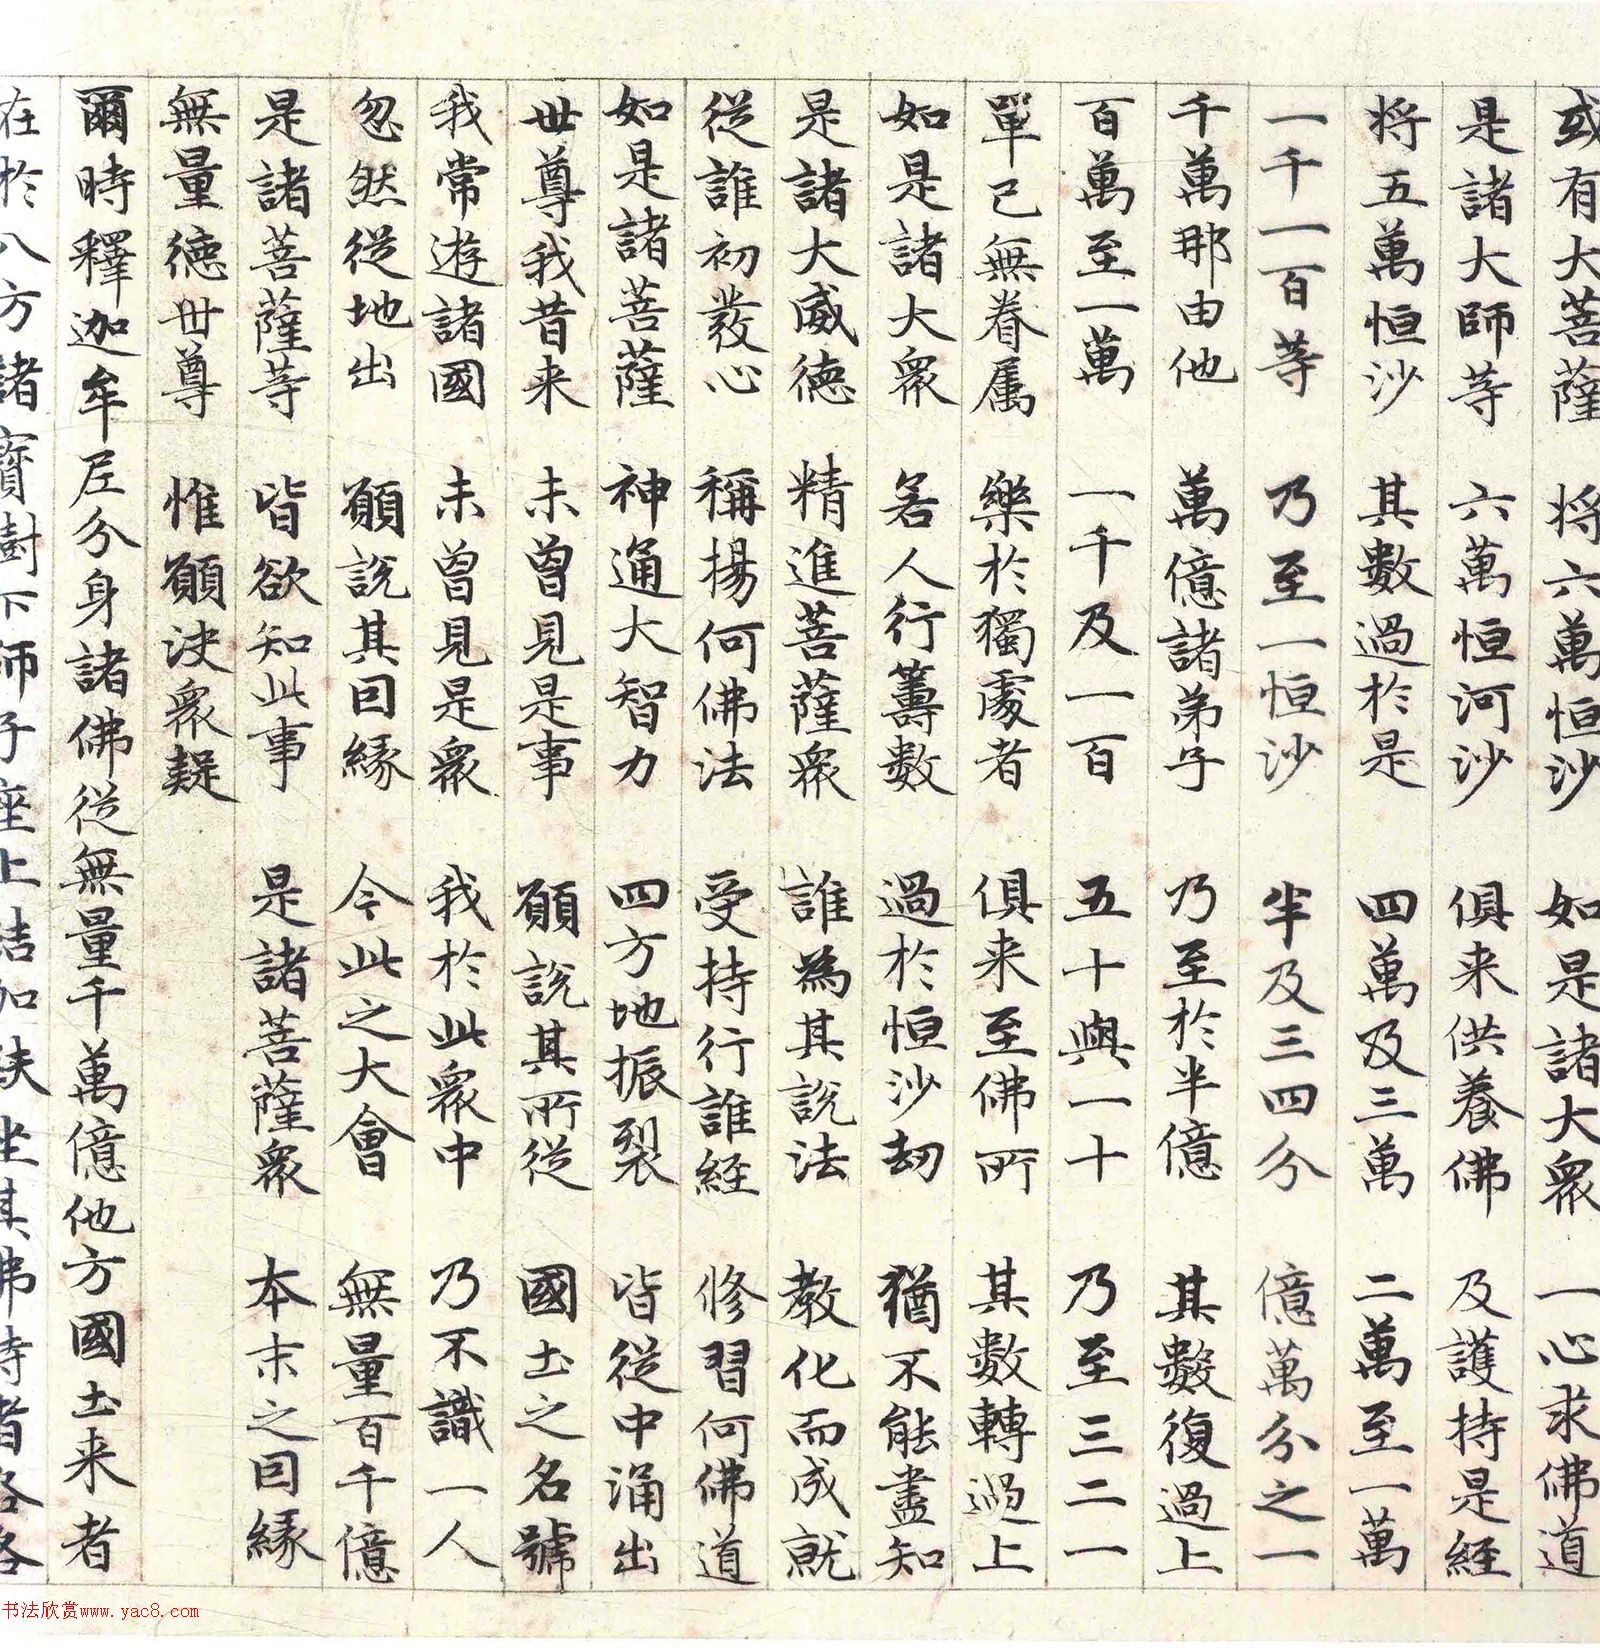 或有大菩薩 将六萬恒沙 如是諸大衆 一心求佛道
是諸大師等 六萬恒河沙 俱来供養佛 及護持是經
将五萬恒沙 其數過於是 四萬及三萬 二萬至一萬
一千一百等 乃至一恒沙 半及三四分 億萬分之一
千萬那由他 萬億諸弟子 乃至於半億 其數復過上
百萬至一萬 一千及一百 五十與一十 乃至三二一
單己無眷属 樂於獨處者 俱来至佛所 其數轉過上
如是諸大衆 若人行籌數 過於恒沙劫 猶不能盡知
是諸大威德 精進菩薩衆 誰為其說法 教化而成就
從誰初發心 稱揚何佛法 受持行誰經 修習何佛道
如是諸菩薩 神通大智力 四方地振裂 皆從中涌出
世尊我昔来 未曽見是事 願說其所從 國土之名號
我常遊諸國 未曽見是衆 我於此衆中 乃不識一人
忽然從地出 願說其因緣 今此之大會 無量百千億
是諸菩薩等 皆欲知此事 是諸菩薩衆 本末之因緣
無量德世尊 惟願決衆疑
爾時釋迦牟尼分身諸佛從無量千萬億他方國土来者
在於八方諸寶樹下師子座上結加趺坐其佛侍者各各
书法欣赏www.yac8.com